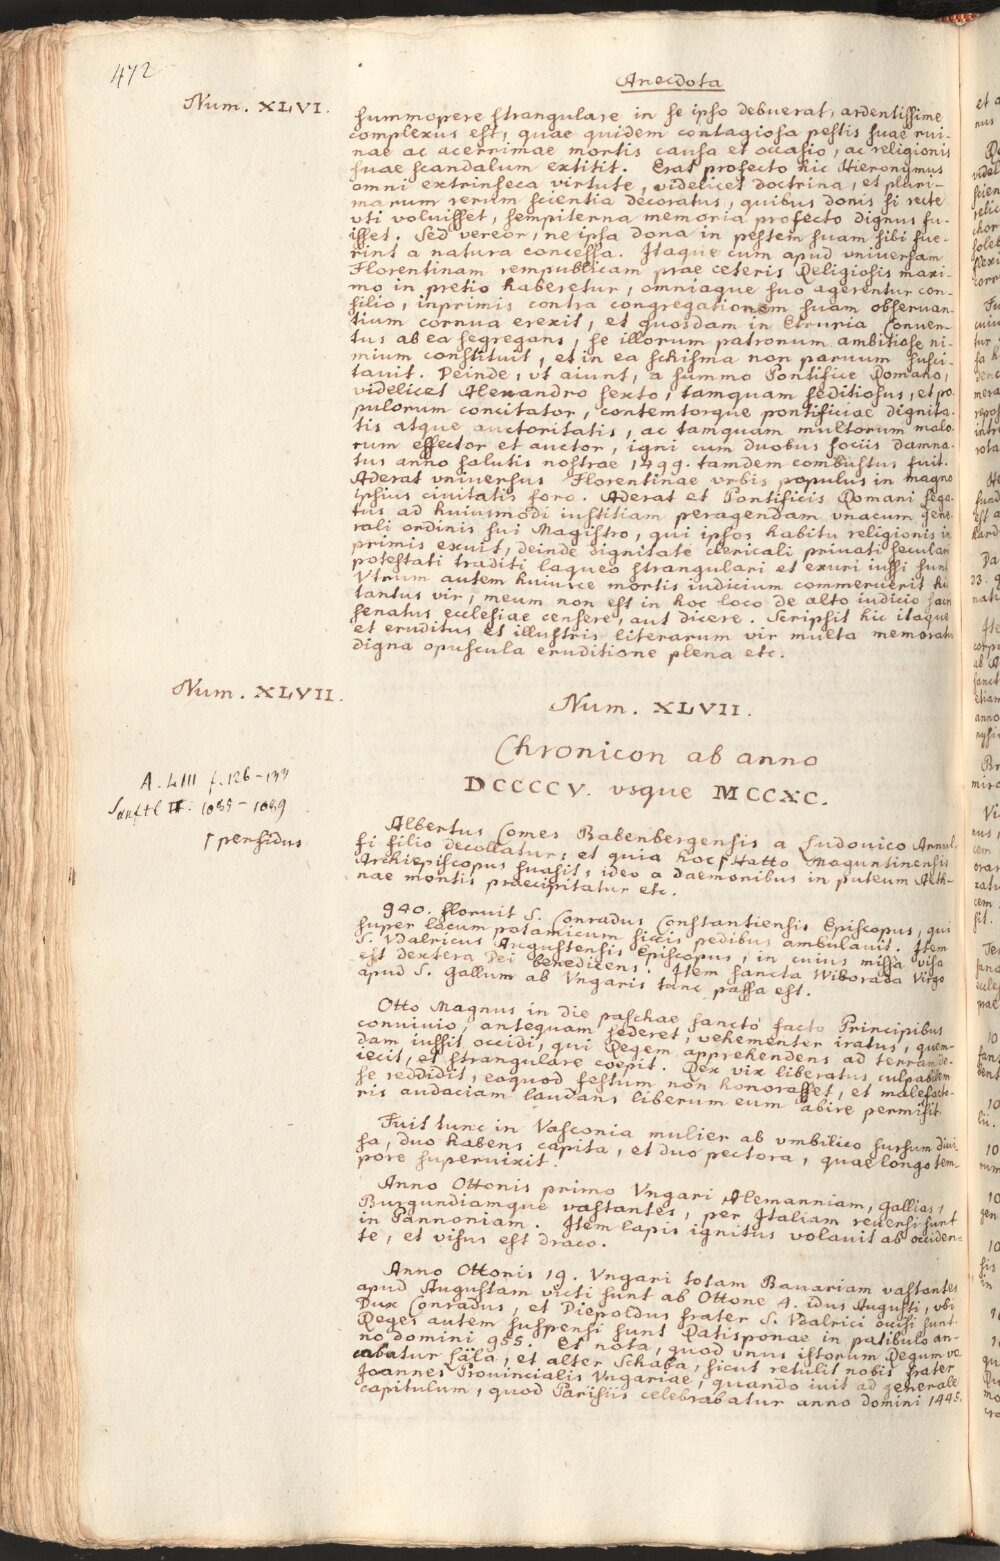 472
Anecdota
Num. XLVI.
summopere strangulare in se ipso debuerat, ardentissime
complexus est, quae quidem contagiosa pestis suae rui-
nae ac acerrimae mortis causa et occasio, ac religionis
suae scandalum extitit. Erat profecto hic Hieronymus
omni extrinseca virtute, videlicet doctrina, et pluri-
marum rerum scientia decoratus, quibus donis si recte
vti voluisset, sempiterna memoria profecto dignus fu-
isset. Sed vereor, ne ipsa dona in pestem suam sibi fue-
rint a natura concessa. Itaque cum apud vniversam
Florentinam rempublicam prae ceteris Religiosis maxi-
mo in pretio haberetur, omniaque suo agerentur con-
silio, inprimis contra congregationem suam obseruan-
tium cornua erexit, et quosdam in Etruria Conuen-
tus ab ea segregans, se illorum patronum ambitiose ni-
mium constituit, et in ea schisma non paruum susci-
tauit. Deinde, vt aiunt, a summo Pontifice Romano,
videlicet Alexandro sexto, tamquam seditiosus, et po-
pulorum concitator, contemtorque pontificiae dignita-
tis atque auctoritatis, ac tamquam multorum malo-
rum effector et auctor, igni cum duobus sociis damna-
tus anno salutis nostrae 1499. tamdem combustus fuit.
Aderat vniversus Florentinae vrbis populus in magno
ipsius ciuitatis foro. Aderat et Pontificis Romani lega-
tus ad huiusmodi iustitiam peragendam vnacum gene-
rali ordinis sui Magistro, qui ipsos habitu religionis in
primis exuit, deinde dignitate clericali priuati seculari
potestati traditi laqueo strangulari et exuri iussi sunt
Vtrum autem huiusce mortis iudicium commeruerit hic
tantus vir, meum non est in hoc loco de alto iudicio sacri
senatus ecclesiae censere, aut dicere. Scripsit hic itaque
et eruditus et illustris literarum vir multa memoratu
digna opuscula eruditione plena etc.
Num. XLVII.
Num. XLVII.
Chronicon ab anno
DCCCCV. vsque MCCXC.
A. LIII f. 126-133
1085-1089
⌈ persidus
Albertus Comes Babenbergensis a Ludovico Arnul-
fi filio decollatur; et quia hoc ⌈ Hatto Maguntinensis
Archiepiscopus suasit, ideo a daemonibus in puteum Aeth-
nae montis praecipitatur etc.
940. floruit S. Conradus Constantiensis Episcopus, qui
super lacum potamicum siccis pedibus ambulauit. Item
S. Vdalricus Augustensis Episcopus, in cuius missa visa
est dextera Dei benedicens. Item sancta Wiborada Virgo
apud S. Gallum ab Vngaris tunc passa est.
Otto Magnus in die paschae sancto facto Principibus
conuiuio, antequam sederet, vehementer iratus, quem-
dam iussit occidi, qui Regem apprehendens ad terram de-
iecit, et strangulare coepit. Rex vix liberatus culpabilem
se reddidit, eaquod festum non honorasset, et malefacto-
ris audaciam laudans liberum eum abire permisit.
Fuit tunc in Vasconia mulier ab vmbilico sursum diui-
sa, duo habens capita, et duo pectora, quae longo tem-
pore superuixit.
Anno Ottonis primo Vngari Alemanniam, Gallias,
Burgundiamque vastantes, per Italiam reuersi sunt
in Pannoniam. Item lapis ignitus volauit ab occiden-
te, et visus est draco.
Anno Ottonis 19. Vngari totam Bauariam vastantes
apud Augustam victi sunt ab Ottone 4. idus Augusti, vbi
Dux Conradus, et Diepoldus frater S. Vdalrici occisi sunt.
Reges autem suspensi sunt Ratisponae in patibulo an-
no domini 955. Et nota, quod vnus istorum Regum vo-
cabatur Läla, et alter Schaba, sicut retulit nobis frater
Joannes Prouincialis Vngariae, quando iuit ad generale
capitulum, quod Parisiis celebrabatur anno domini 1445.